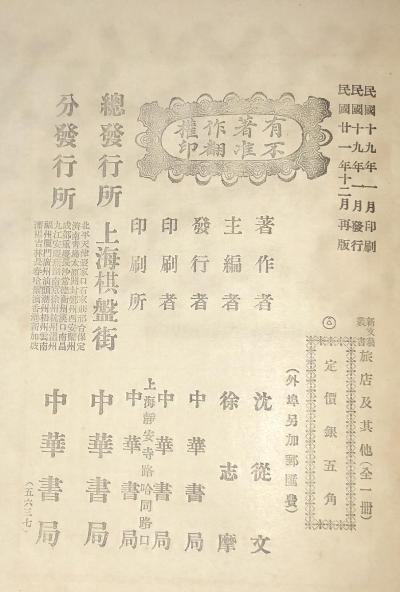 民國十九年一月印刷
民國十九年一月發行
民國廿一年十二月再版
新文藝叢書
旅店及其他(全一冊)
定價銀五角
(外埠另加郵匯費)
有著作權
不准翻印
著作者 沈從文
主編者 徐志摩
發行者 中華書局
印刷者 中華書局
印刷所 上海靜安寺路哈同路口 中華書局
總發行所 上海棋盤街 中華書局
分發行所 中華書局
北平天津張家口石家莊邢台保定
濟南青島太原開封鄭州西安蘭州
成都重慶長沙常德衡州漢口南昌
九江安慶蕪湖南京徐州杭州溫州
福州廈門廣州汕頭潮州梧州雲南
瀋陽吉林長春哈爾濱香港新加坡
(五六三七)